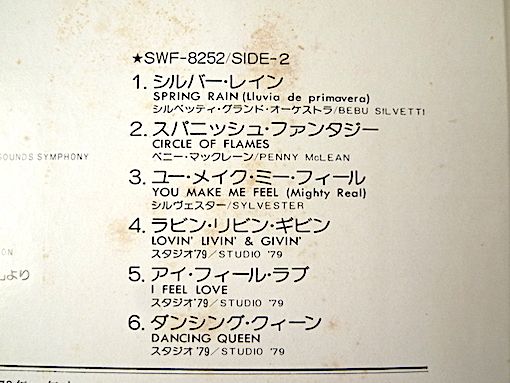 ★SWF-8252/SIDE-2
1. シルバー・レイン
SPRING RAIN (Lluvia de primavera)
シルベッティ・グランド・オーケストラ/BEBU SILVETTI
2. スパニッシュ・ファンタジー
CIRCLE OF FLAMES
ペニー・マックレーン/PENNY McLEAN
SOUNDS SYMPHONY
3. ユー・メイク・ミー・フィール
YOU MAKE ME FEEL (Mighty Real)
シルヴェスター/SYLVESTER
4. ラビン・リビン・ギビン
LOVIN' LIVIN' & GIVIN'
スタジオ'79/STUDIO '79
ION
5. アイ・フィール・ラブ
I FEEL LOVE
スタジオ'79/STUDIO '79
より
6. ダンシング・クィーン
DANCING QUEEN
スタジオ'79/STUDIO '79